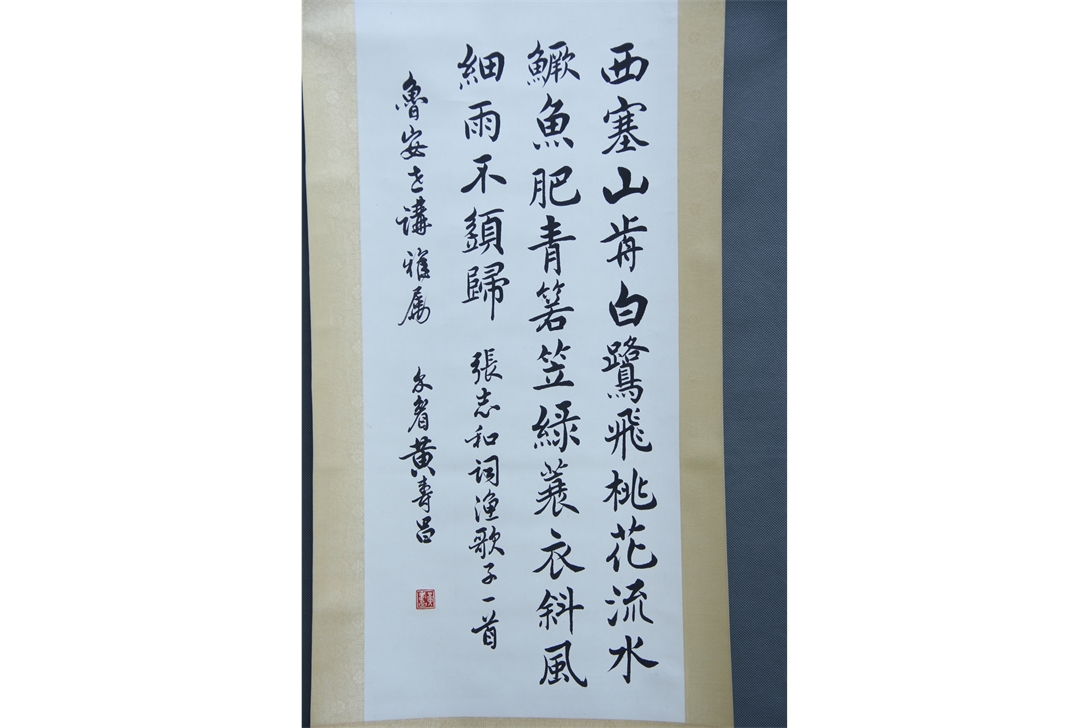 西塞山歬白鷺飛桃花流水
鱖魚肥青箬笠綠蓑衣斜風
細雨不須歸 張志和詞漁歌子一首
魯安世講雅屬 黃壽昌